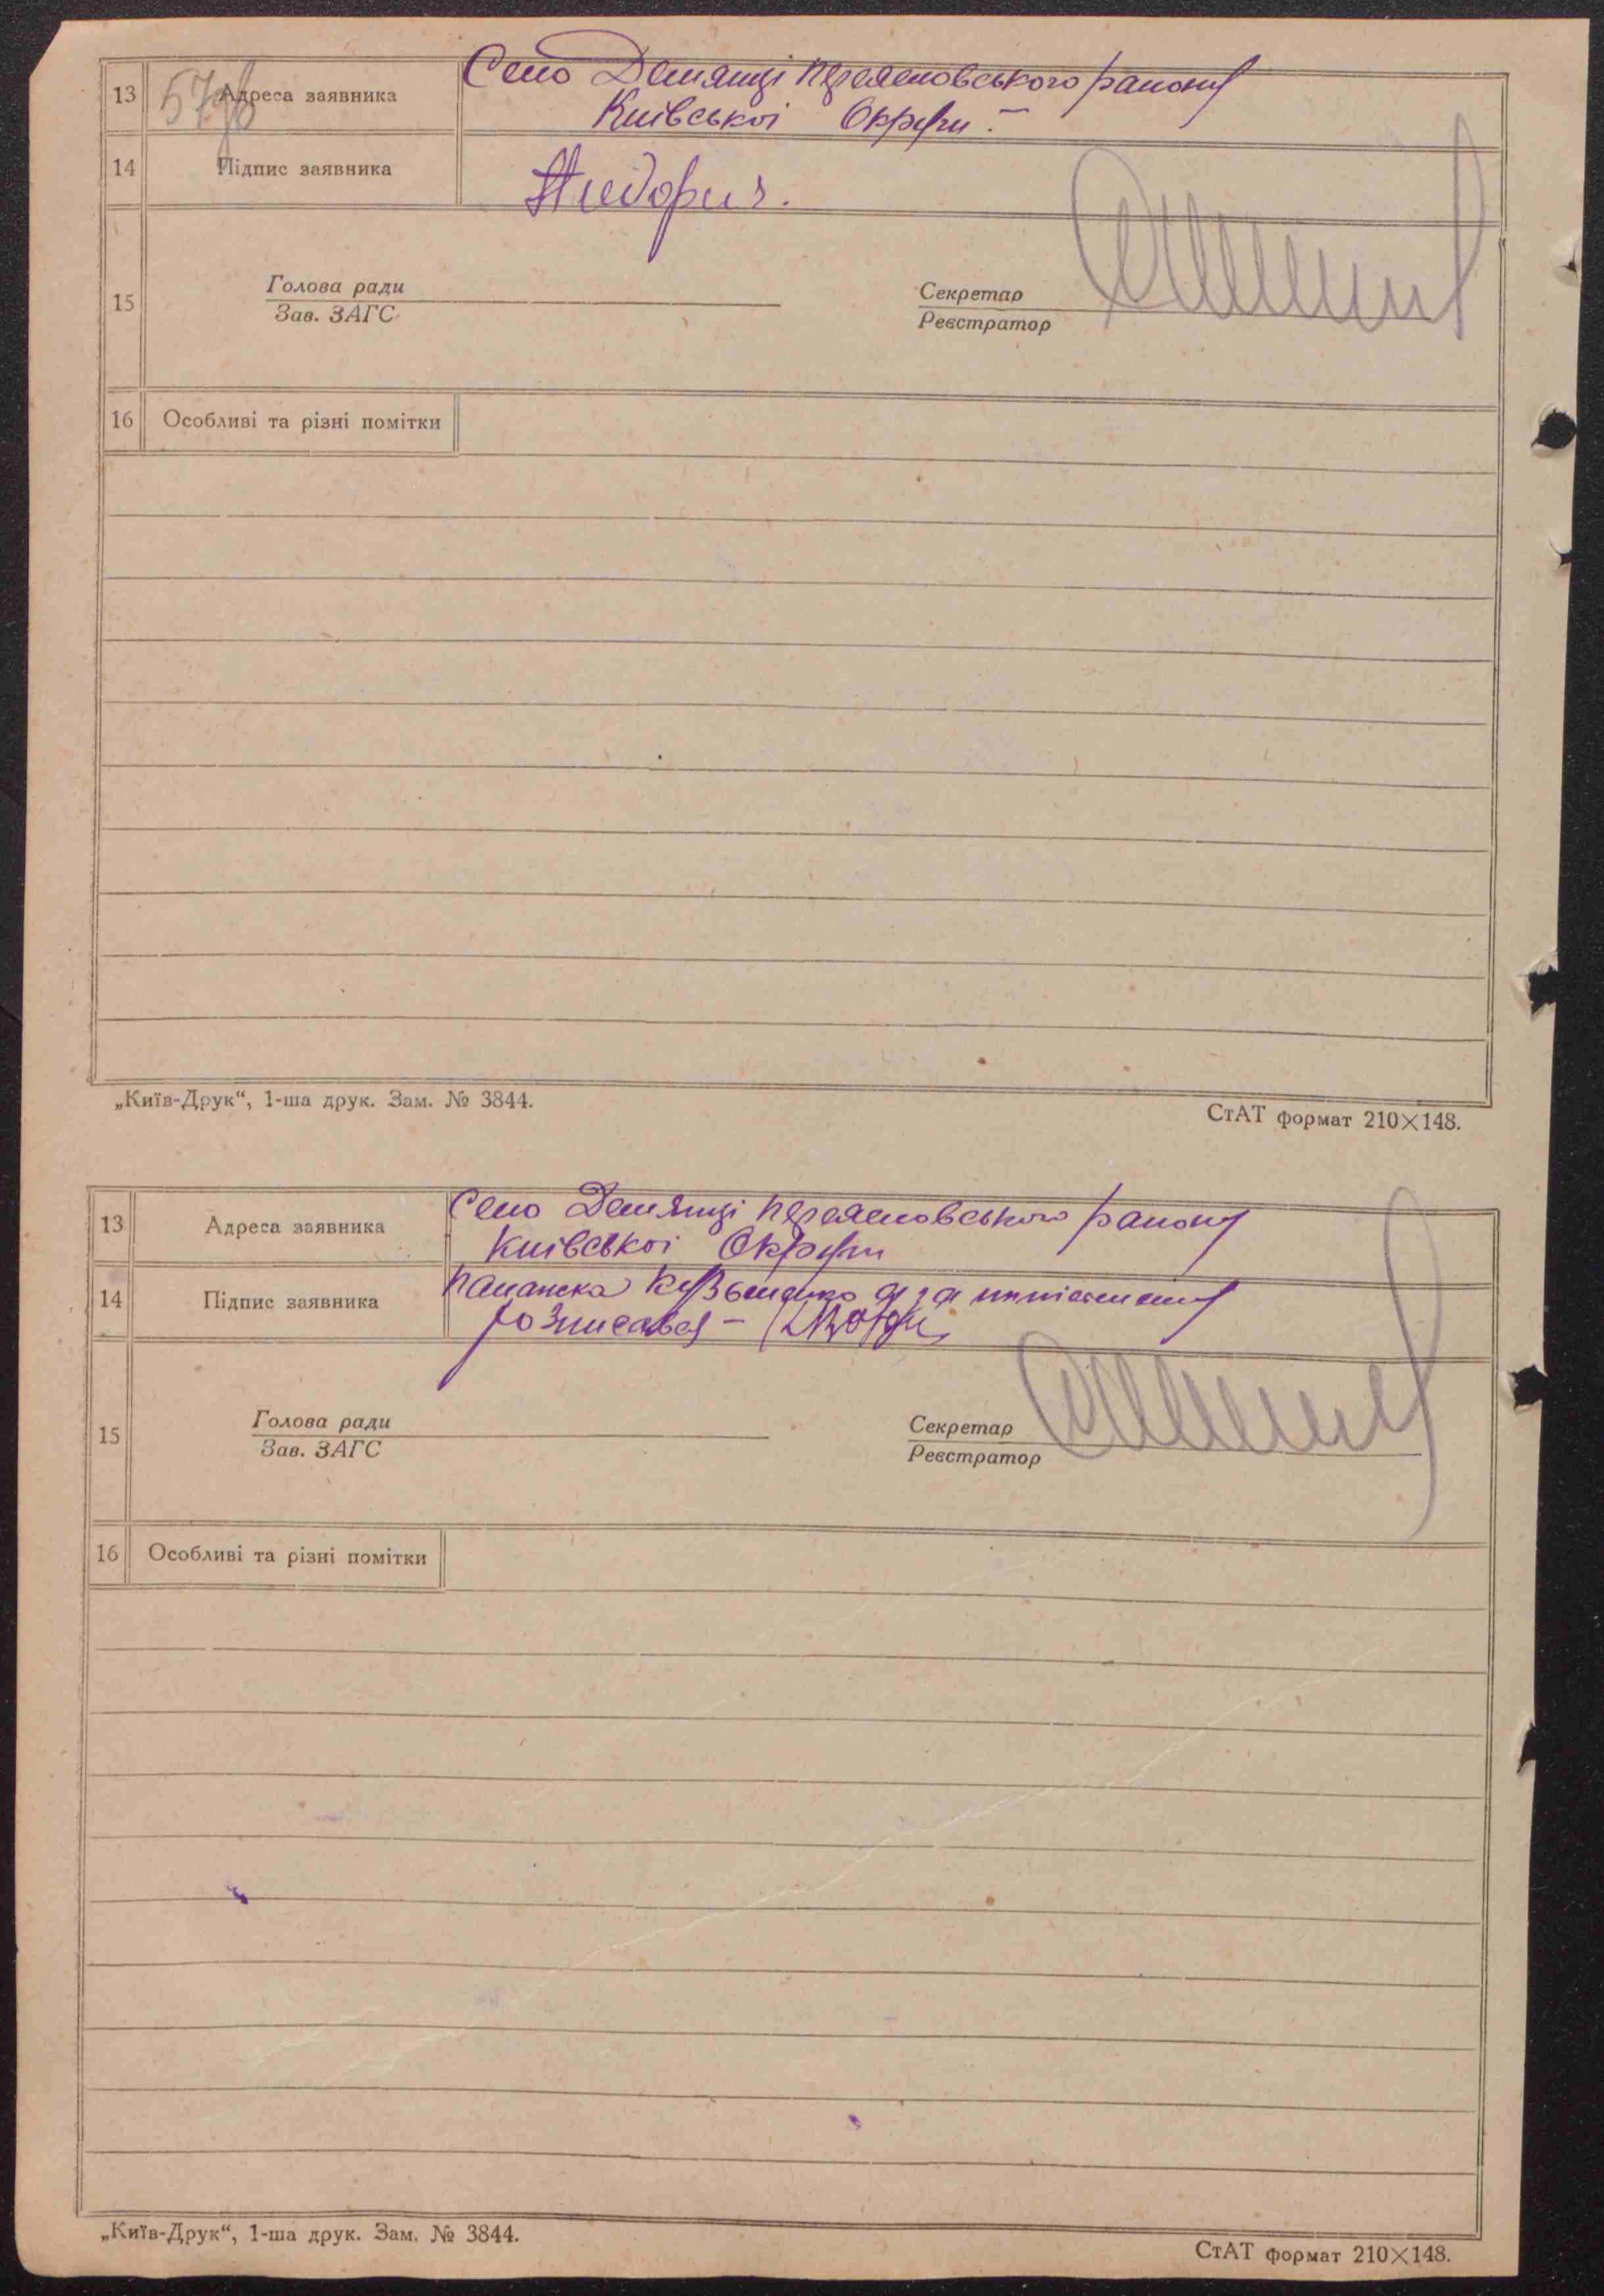 13 Адреса заявника Село Демянці переясловського району
Київської Округи. —
57
14 Підпис заявника
15 Голова ради
Зав. ЗАГС
Секретар
Реєстратор
16 Особливі та різні помітки
„Київ-Друк“, 1-ша друк. Зам. № 3844.
СтАТ формат 210×148.
13 Адреса заявника Село Демянці переясловського району
Київської Округи
14 Підпис заявника
розписався —
15 Голова ради
Зав. ЗАГС
Секретар
Реєстратор
16 Особливі та різні помітки
„Київ-Друк“, 1-ша друк. Зам. № 3844.
СтАТ формат 210×148.